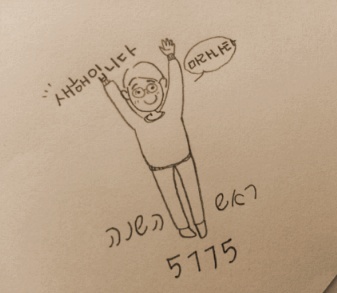 새해입니다
마라나타
ראש השנה
5775